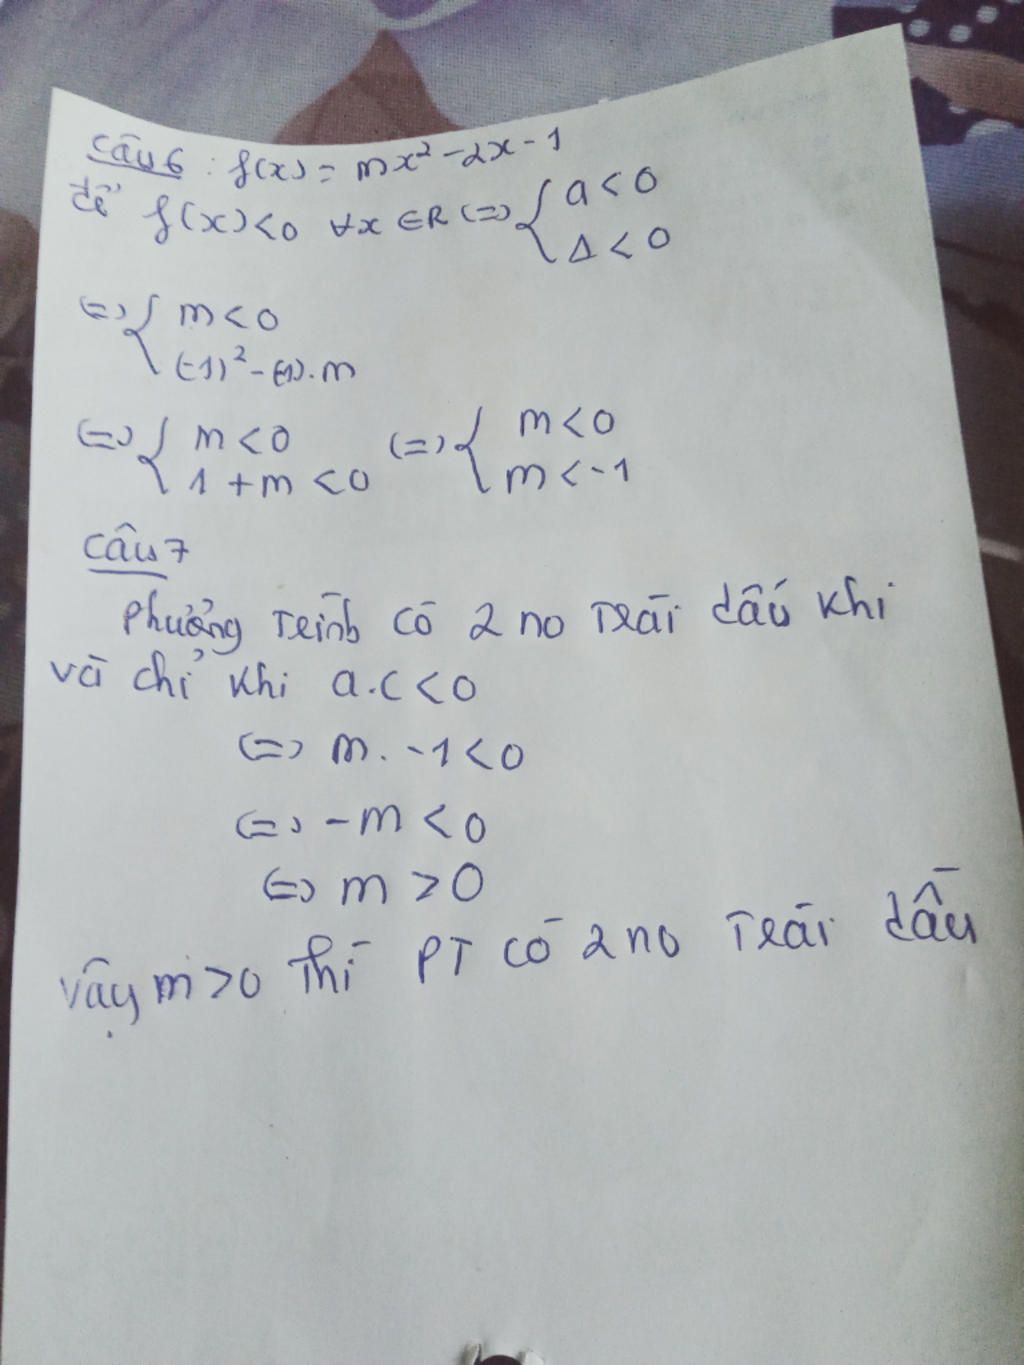 Câu 6 : f(x) = mx² - 2x - 1
để f(x) < 0 ∀x ∈ R (=) { a < 0
Δ < 0
(=) { m < 0
(-1)² - (-1).m
(=) { m < 0 (=) { m < 0
1 + m < 0 m < -1
Câu 7
Phương trình có 2 no trái dấu khi
và chỉ khi a.c < 0
(=) m. -1 < 0
(=) -m < 0
(=) m > 0
vậy m > 0 thì PT có 2 no trái dấu